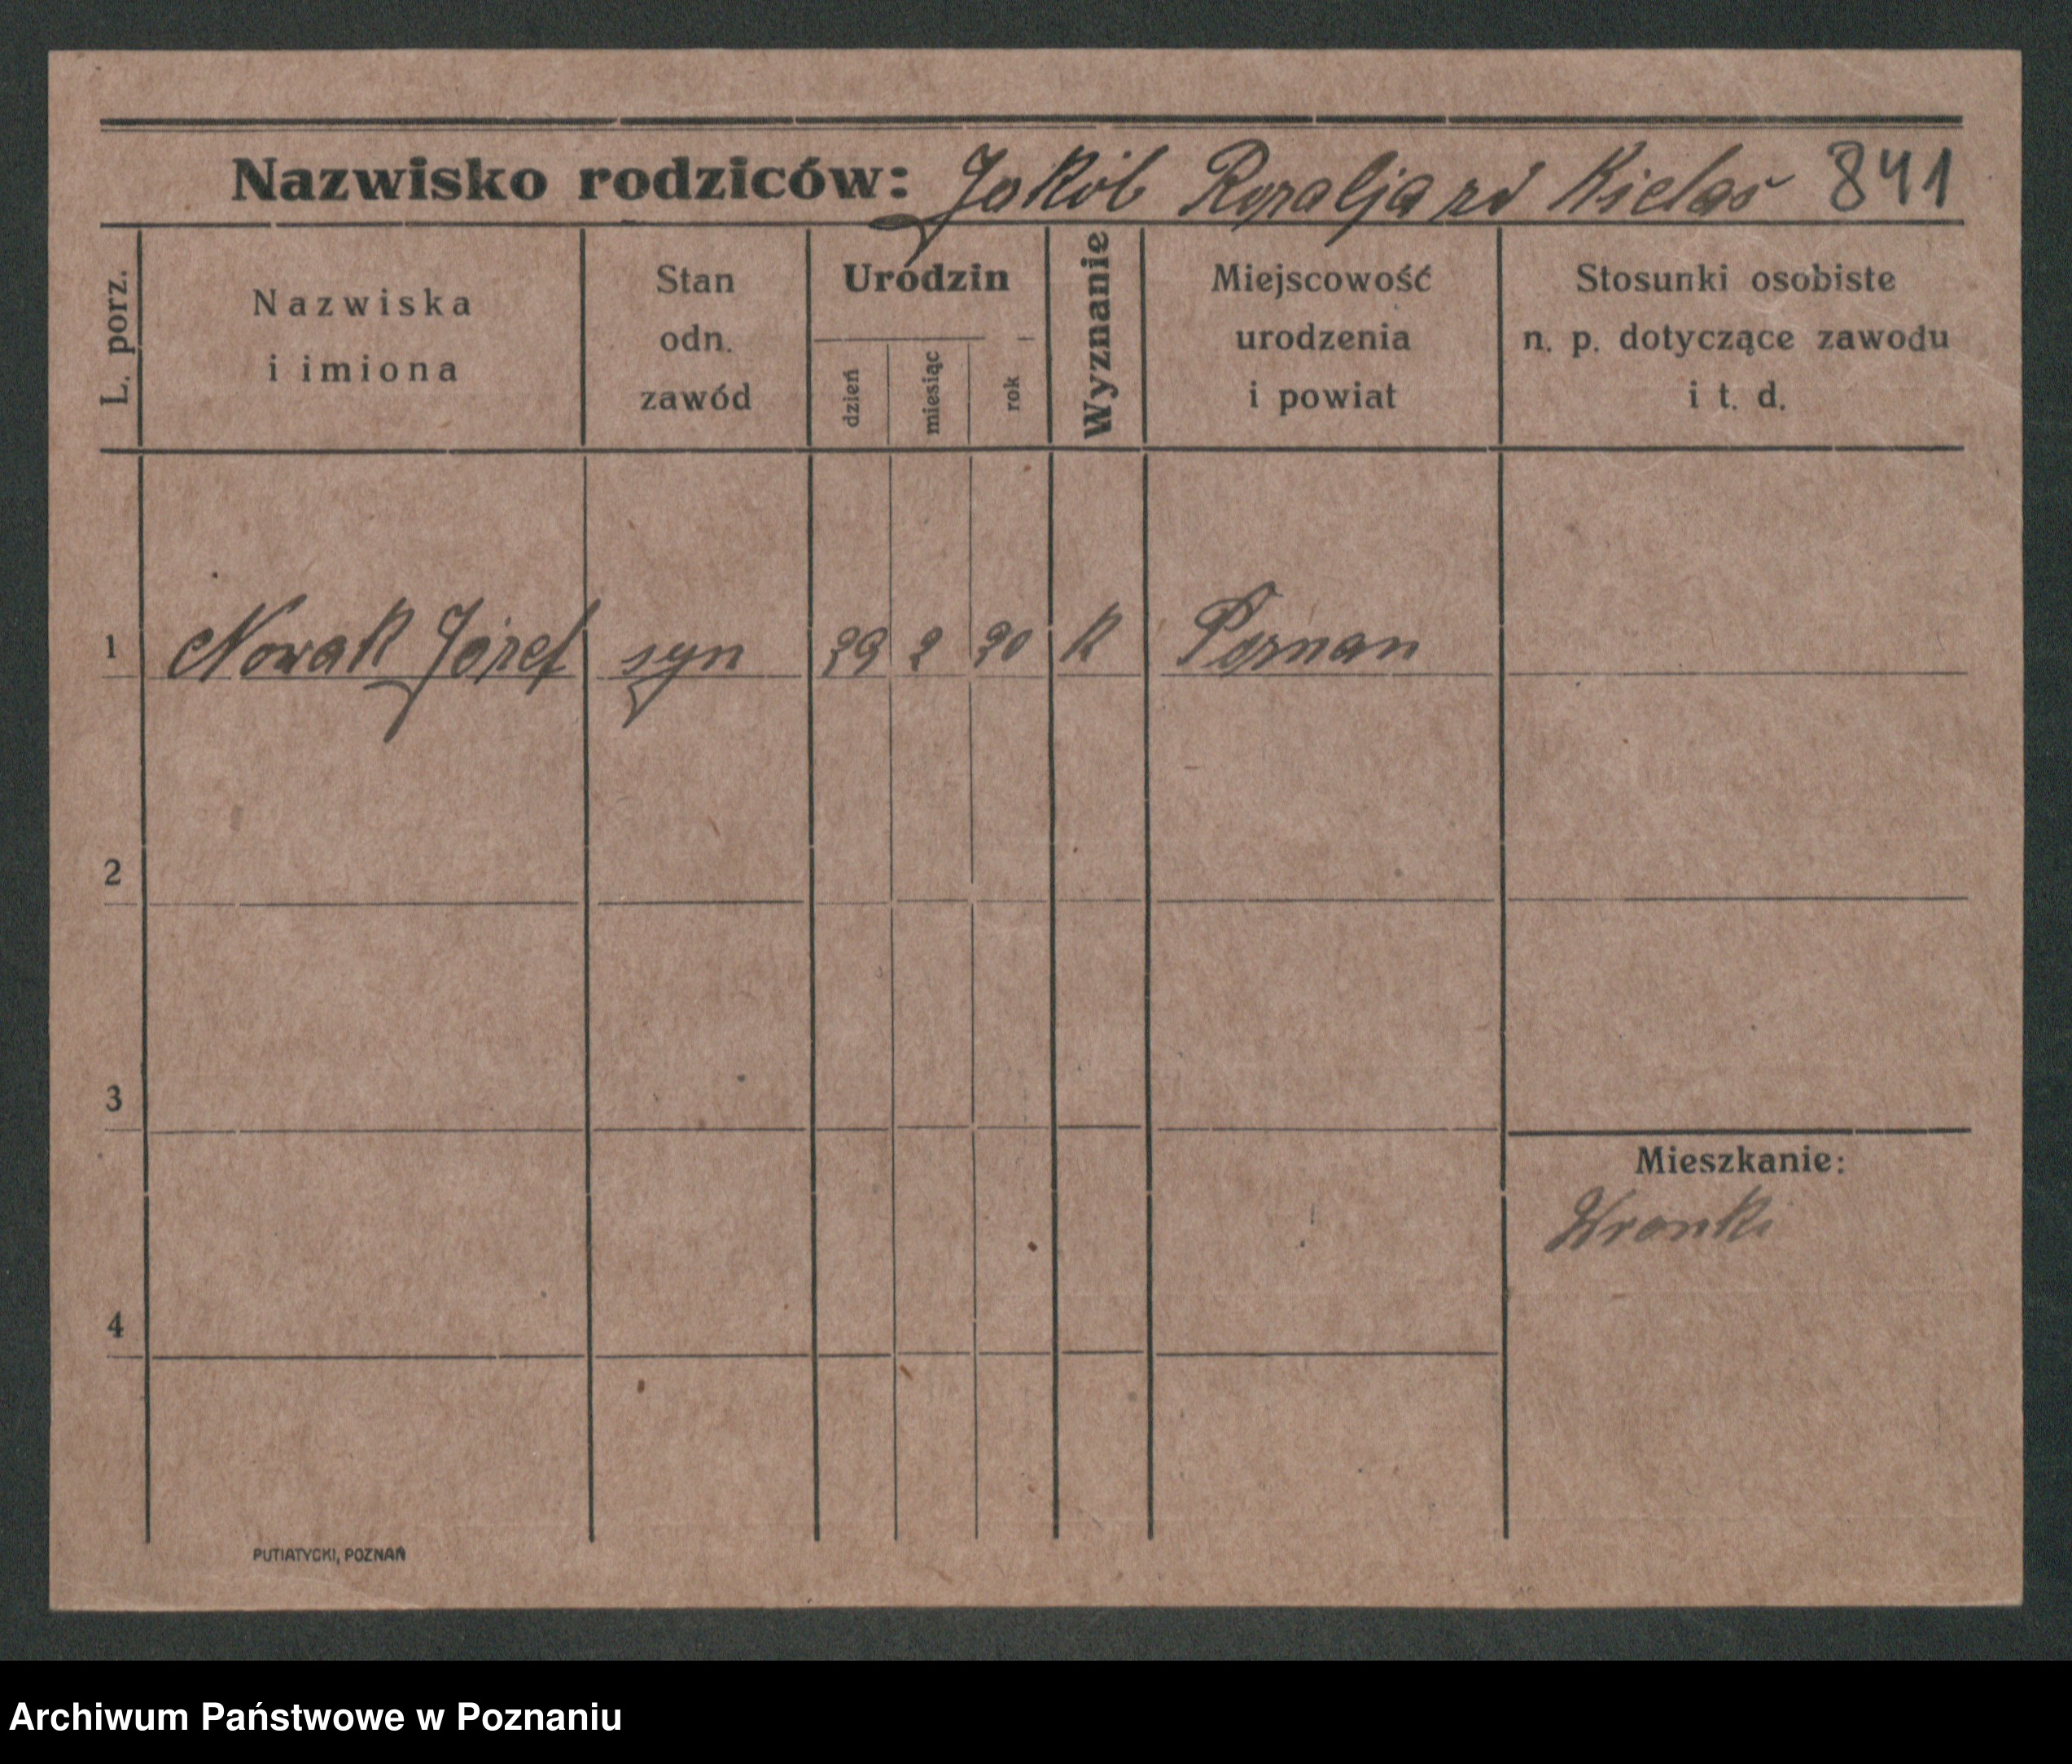 Nazwisko rodziców: Jakób Rozalja zd Kielaś 841
L. porz.
Nazwiska
i imiona
Stan
odn.
zawód
Urodzin
dzień
miesiąc
rok
Wyznanie
Miejscowość
urodzenia
i powiat
Stosunki osobiste
n. p. dotyczące zawodu
i t. d.
1 Nowak Józef syn 29 2 20 k Poznan
2
3
Mieszkanie:
Wronki
4
PUTIATYCKI, POZNAŃ
Archiwum Państwowe w Poznaniu